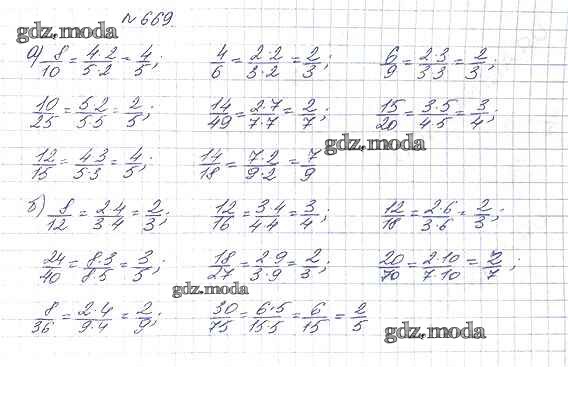 № 669.
gdz.moda
а) 8/10 = 4·2/5·2 = 4/5; 4/6 = 2·2/3·2 = 2/3; 6/9 = 2·3/3·3 = 2/3;
10/25 = 5·2/5·5 = 2/5; 14/49 = 2·7/7·7 = 2/7; 15/20 = 3·5/4·5 = 3/4;
gdz.moda
12/15 = 4·3/5·3 = 4/5; 14/18 = 7·2/9·2 = 7/9
б) 8/12 = 2·4/3·4 = 2/3; 12/16 = 3·4/4·4 = 3/4; 12/18 = 2·6/3·6 = 2/3;
24/40 = 8·3/8·5 = 3/5; 18/27 = 2·9/3·9 = 2/3; 20/70 = 2·10/7·10 = 2/7;
gdz.moda
8/36 = 2·4/9·4 = 2/9; 30/75 = 6·5/15·5 = 6/15 = 2/5
gdz.moda